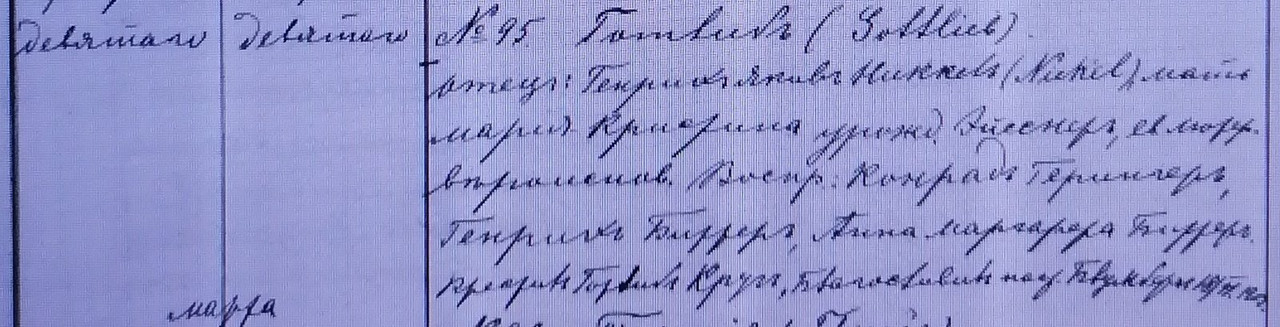 девятаго девятаго № 95. Готлибъ (Gottlieb).
отецъ: Генрихъ Яковъ Никкель (Nickel), мать
Мария Кристина урожд. Эйснеръ, ев. лютер.
вѣроисповѣд. Воспр.: Конрадъ Герингеръ,
Генрихъ Биффертъ, Анна Маргарета Биффертъ.
крестилъ Готлибъ Кругъ, благословилъ паст.
марта